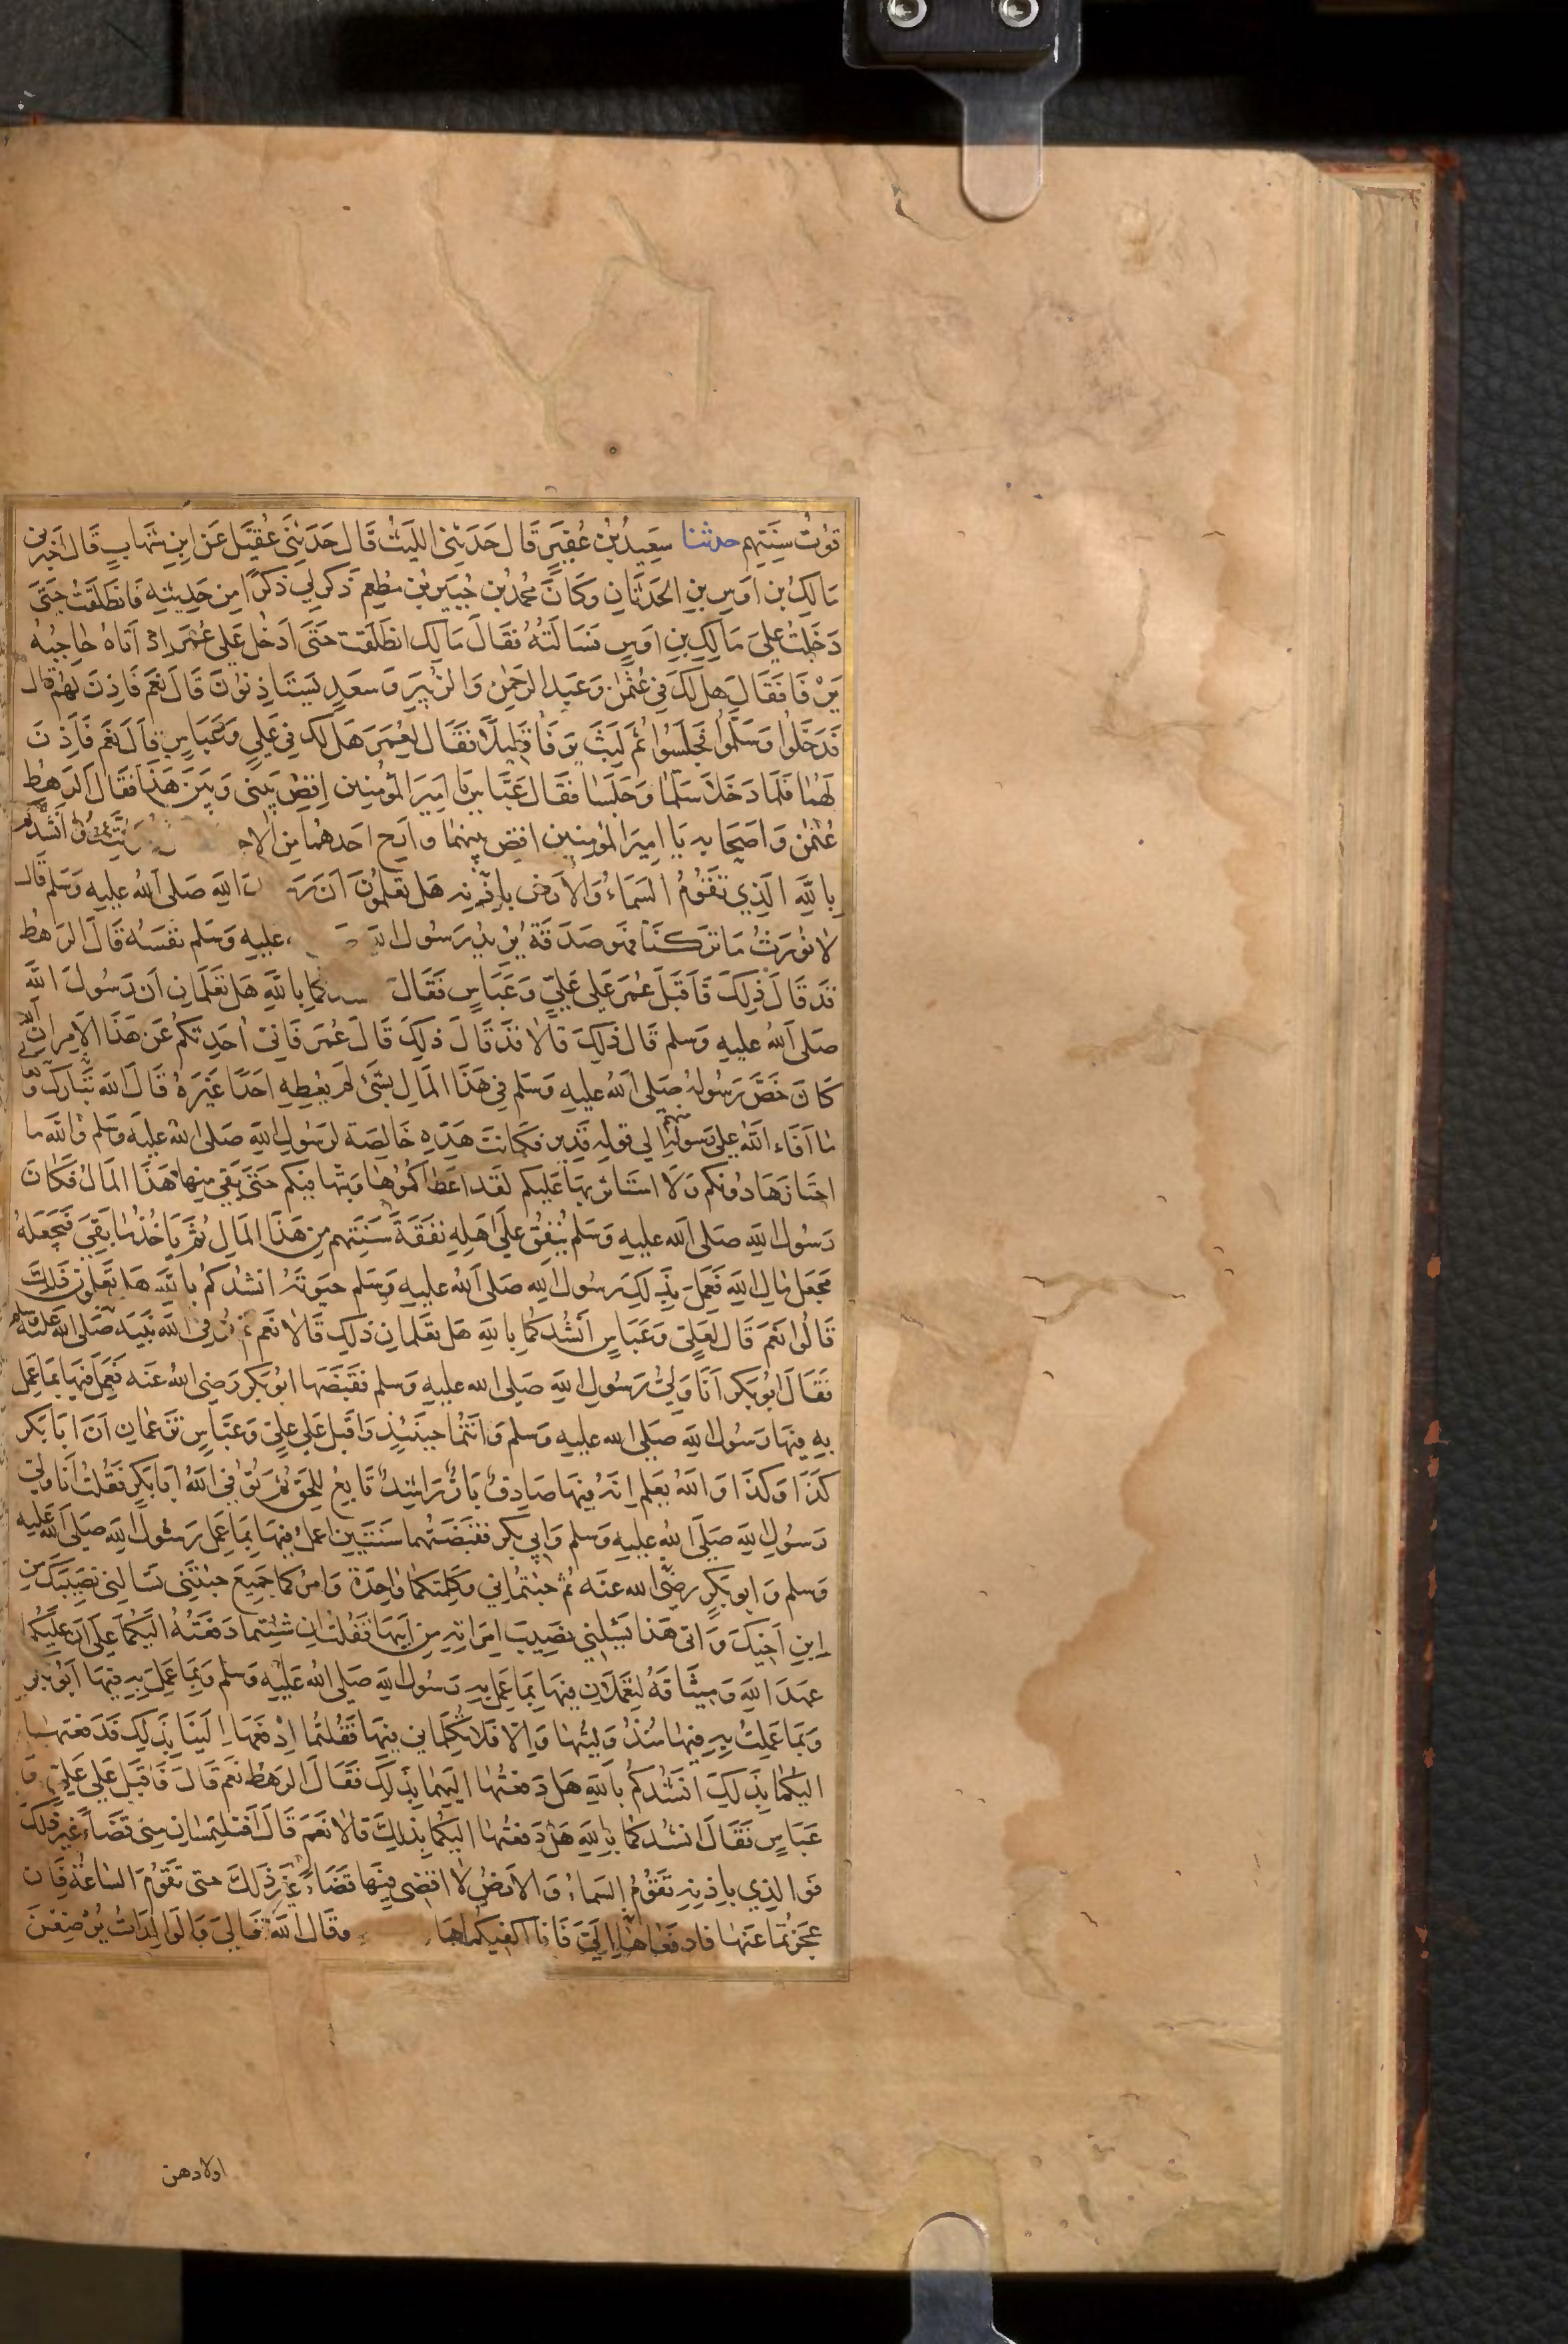 قوت سنتهم حدثنا سعيد بن عفير قال حدثني الليث قال حدثني عقيل عن ابن شهاب قال اخبرني
مالك بن اوس بن الحدثان وكان محمد بن جبير بن مطعم ذكر لي ذكرا من حديثه فانطلقت حتى
دخلت على مالك بن اوس فسالته فقال مالك انطلقت حتى ادخل على عمر اذ اتاه حاجبه
يرفا فقال هل لك في عثمن وعبد الرحمن والزبير وسعد يستاذنون قال نعم فاذن لهم قال
فدخلوا وسلموا فجلسوا ثم لبث يرفا قليلا فقال لعمر هل لك في علي وعباس قال نعم فاذن
لهما فلما دخلا سلما وجلسا فقال عباس يا امير المؤمنين اقض بيني وبين هذا فقال الرهط
عثمن واصحابه يا امير المؤمنين اقض بينهما وارح احدهما من الاخر انشدكم
بالله الذي تقوم السماء والارض باذنه هل تعلمون ان رسول الله صلى الله عليه وسلم قال
لا نورث ما تركنا فهو صدقة يريد رسول الله عليه وسلم نفسه قال الرهط
قد قال ذلك فاقبل عمر على علي وعباس فقال انشدكما بالله هل تعلمان ان رسول الله
صلى الله عليه وسلم قال ذلك قالا قد قال ذلك قال عمر فاني احدثكم عن هذا الامر ان الله
كان خص رسوله صلى الله عليه وسلم في هذا المال بشئ لم يعطه احدا غيره قال الله تبارك و
ما افاء الله على رسوله منهم الي قوله قدير فكانت هذه خالصة لرسول الله صلى الله عليه وسلم والله ما
احتازها دونكم ولا استاثر بها عليكم لقد اعطاكموها وبثها فيكم حتى بقي منها هذا المال فكان
رسول الله صلى الله عليه وسلم ينفق على اهله نفقة سنتهم من هذا المال ثم ياخذ ما بقي فيجعله
مجعل مال الله فعمل بذلك رسول الله صلى الله عليه وسلم حيوته انشدكم بالله هل تعلمون ذلك
قالوا نعم قال لعلي وعباس انشدكما بالله هل تعلمان ذلك قالا نعم ثم توفى الله نبيه صلى الله عليه وسلم
فقال ابو بكر انا ولي رسول الله صلى الله عليه وسلم فقبضها ابو بكر رضى الله عنه فعمل فيها بما عمل
به فيها رسول الله صلى الله عليه وسلم وانتما حينئذ واقبل على علي وعباس تزعمان ان ابا بكر
كذا وكذا والله يعلم انه فيها صادق بار راشد تابع للحق ثم توفى الله ابا بكر فقلت انا ولي
رسول الله صلى الله عليه وسلم وابي بكر فقبضتهما سنتين اعمل فيها بما عمل رسول الله صلى الله عليه
وسلم وابو بكر رضى الله عنه ثم جئتماني وكلمتكما واحدة وامركما جميع جئتني تسالني نصيبك من
ابن اخيك واتى هذا يسئلني نصيب امراته من ابيها فقلت ان شئتما دفعته اليكما على ان عليكما
عهد الله وميثاقه لتعملان فيها بما عمل به رسول الله صلى الله عليه وسلم وبما عمل به فيها ابو بكر
وبما عملت به فيها منذ وليتها والا فلا تكلماني فيها فقلتما ادفعها الينا بذلك فدفعتها
اليكما بذلك انشدكم بالله هل دفعتها اليهما بذلك فقال الرهط نعم قال فاقبل على علي و
عباس فقال انشدكما بالله هل دفعتها اليكما بذلك قالا نعم قال افتلتمسان مني قضاء غير ذلك
فوالذي باذنه تقوم السماء والارض لا اقضى فيها قضاء غير ذلك حتى تقوم الساعة فان
عجزتما عنها فادفعاها الي فانا اكفيكماها وقال الله تعالى والوالدات يرضعن
اولادهن